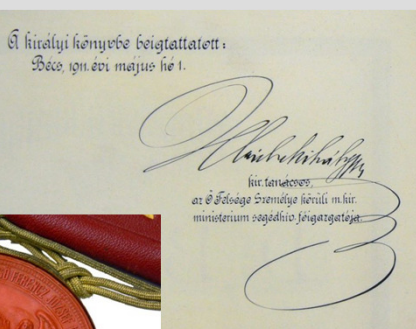 A királyi könyvbe beigtattatott:
Bécs, 1911. évi május hó 1.
kir. tanácsos,
az Ő Felsége Személye körüli m. kir.
ministerium segédhiv. főigazgatója.